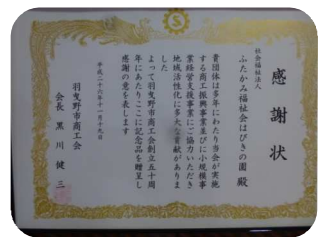 感謝状
社会福祉法人
ふたかみ福祉会はびきの園 殿
貴団体は多年にわたり当会が実施
する商工振興事業並びに小規模事
業経営支援事業にご協力いただき
地域活性化に多大な貢献がありま
した
よって羽曳野市商工会創立五十周
年にあたりここに記念品を贈呈し
感謝の意を表します
平成二十六年十一月十九日
羽曳野市商工会
会長 黒川健三